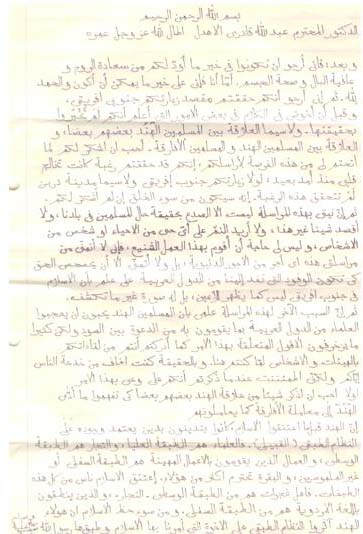 بسم الله الرحمن الرحيم
الدكتور المحترم عبد الله قادري الأهدل اطال الله عز وجل عمره
و بعد، فإني أرجو أن تكونوا في خير ما أود لكم من سعادة الروح و
عافية البال و صحة الجسم. أما أنا فإني على خير ما يمكن أن أكون والحمد
لله. ثم إني أرجو أنكم حققتم مقصد زيارتكم جنوبي أفريقي.
و قبل أن أخوض في الكلام في بعض الأمور التي
بحقيقتها. ولاسيما العلاقة بين المسلمين الهند بعضهم بعضا، و
العلاقة بين المسلمين الهند و المسلمين الأفارقة. أحب أن أشكر لكم لما
أتحتم لي من هذه الفرصة لأراسلكم، إنكم قد حققتم رغبة كانت تخالج
قلبي منذ أمد بعيد، لولا زيارتكم جنوب إفريقي ولاسيما مدينة دربن
لم تتحقق هذه الرغبة. إنه سيكون من سوء الخلق إن لم أشكر لكم.
ثم إن نيتي بهذه المراسلة ليست الا الصدع بحقيقة حال المسلمين في بلدنا، ولا
أقصد شيئا غير هذا، و لا أريد النقد على أي حي من الأحياء أو شخص من
الأشخاص، و ليس لي حاجة أن أقوم بهذا العمل الشنيع، فإني لا أبتغي من
مراسلتي هذه أي أجر من الأمور الدنيوية، بل ولا أبتغي إلا أن يمحص الحق
كي تكون الوفود التي تفد إلينا من الدول العربية على علم بأن الإسلام
بل جنوب أفريقي ليس كما يظهر للعين، بل له سورة غير ما تكشفه.
ثم إن السبب الآخر لهذه المراسلة علمي بأن المسلمين الهند يحبون أن يعجبوا
العلماء من الدول العربية بما يقومون به من الدعوة بين السود ولكن كثيرا
ما يزخرفون الأقوال المتعلقة بهذا الأمر كما أدركتم أنتم من لقاءاتكم
بالهيئات و الأشخاص لقاكنتم هنا. و بالحقيقة كنت أخاف من خدعة الناس
إياكم ولكني اطمئننت عندما ذكرتم أنكم على وعي بهذا الأمر
أولا أحب أن أذكر شيئا من علاقة الهند بعضهم بعضا كي تفهموا ما أدى
الهند إلى معاملة الأفارقة كما يعاملونهم
إن الهند قبلما اعتنقوا الإسلام، كانوا يتدينون بدين يعتمد وجوده على
النظام الطبقي (القبيلي). فالعلماء هم الطبقة العلياء، والتجار هم الطبقة
الوسطى، و العمال الذين يقومون بالاعمال المهينة هم الطبقة السفلى أو
غير الملموسين، و البقرة تحترم أكثر من هؤلاء. إعتنق الإسلام ناس من كل هذه
الطبقات. فأهل غجرات هم من الطبقة الوسطى - التجار، و الذين ينطقون
باللغة الأردوية هم من الطبقة السفلى. و من سوء حظ الإسلام ان هؤلاء
الهند آثروا النظام الطبقي على الأخوة التي أمرنا بها الإسلام و طبقها رسول الله